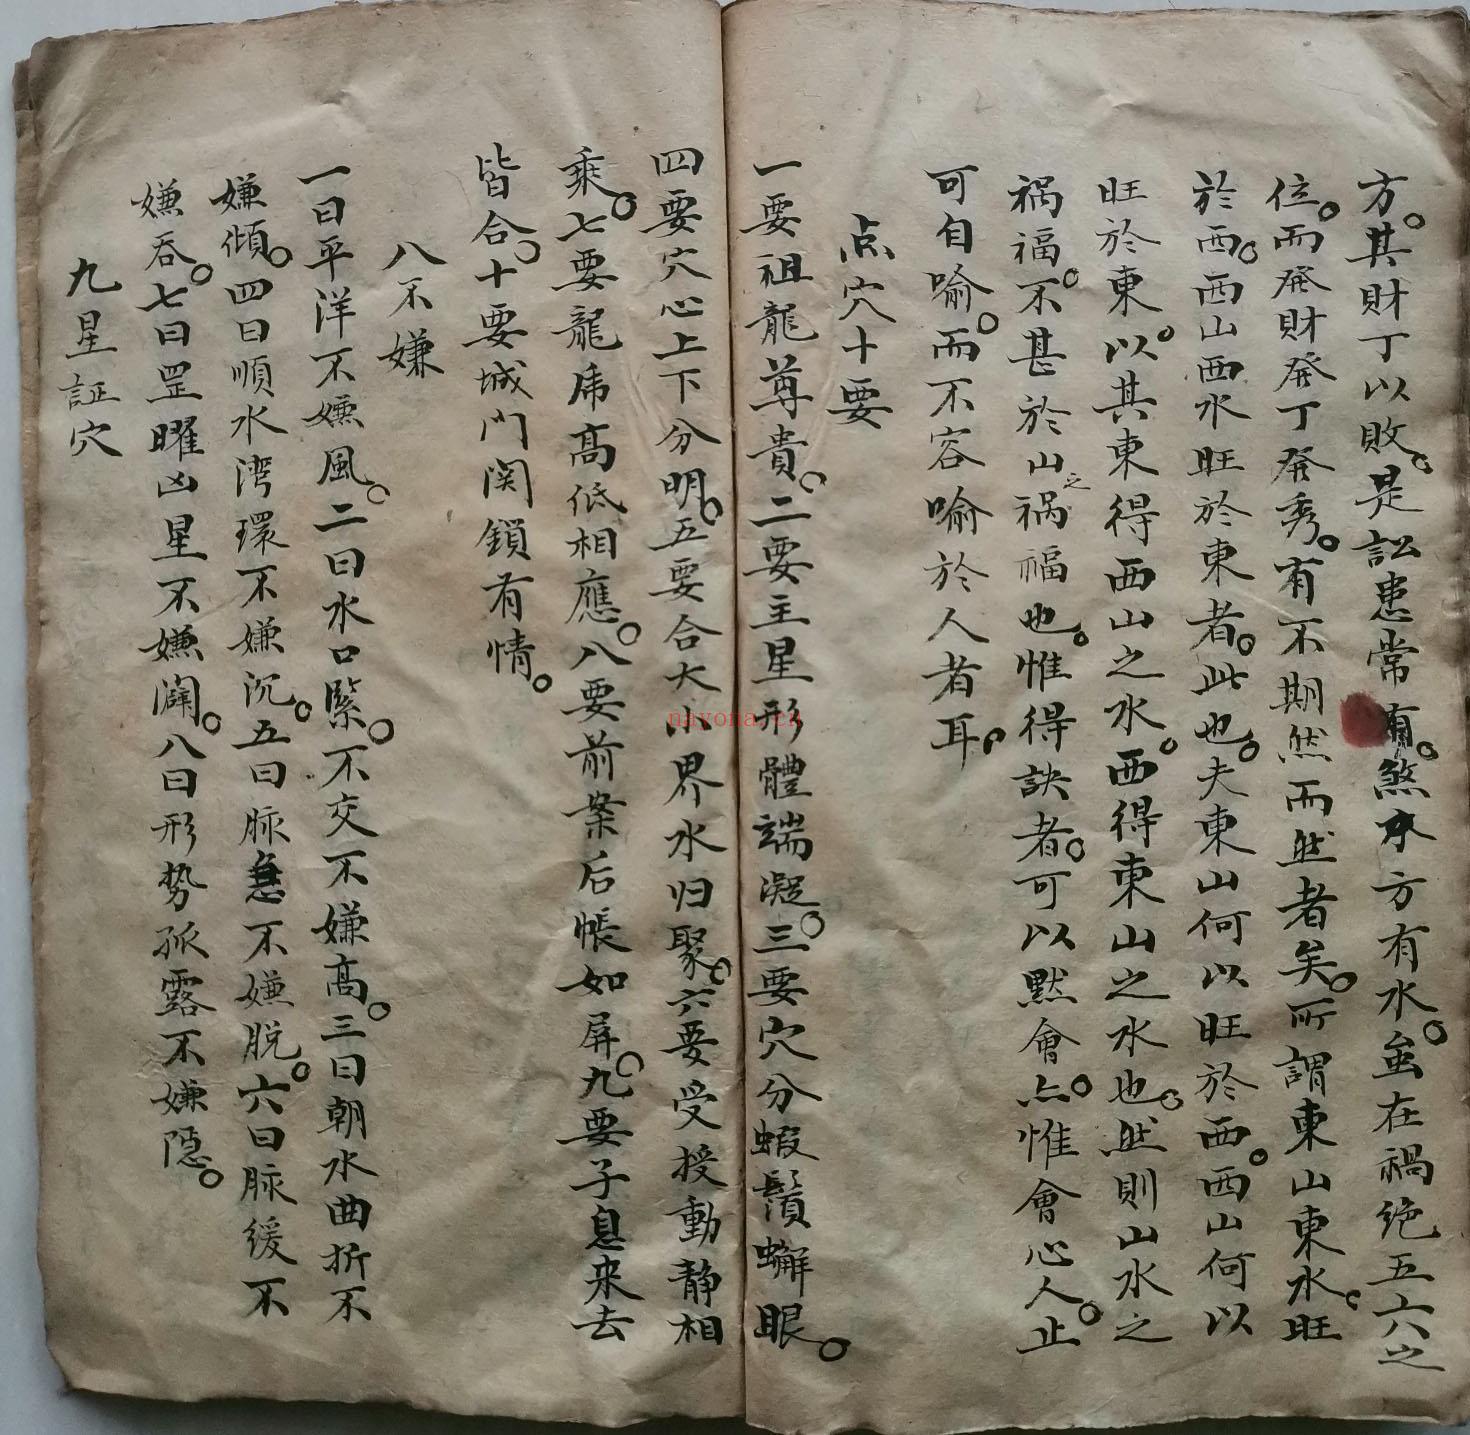 方。其財丁以敗。是訟患常有。煞水方有水。虽在禍绝五六之
位。而発財発丁発秀。有不期然而然者矣。所謂東山東水。旺
於西。西山西水旺於東者。此也。夫東山何以旺於西。西山何以
旺於東。以其東得西山之水。西得東山之水也。然則山水之
祸福。不甚於山之祸福也。惟得訣者。可以默會。惟會心人。止
可自喻。而不容喻於人者耳。
点穴十要
一要祖龍尊貴。二要主星形體端凝。三要穴分蝦鬚蠏眼。
四要穴心上下分明。五要合大小界水归聚。六要受授動静相
乘。七要龍虎高低相應。八要前案后帳如屏。九要子息来去
皆合。十要城门関鎖有情。
八不嫌
一曰平洋不嫌風。二曰水口緊。不交不嫌高。三曰朝水曲折不
嫌傾。四曰順水湾環不嫌沉。五曰脉急不嫌脱。六曰脉缓不
嫌吞。七曰罡曜凶星不嫌澜。八曰形势孤露不嫌隐。
九星証穴
nayona.cn